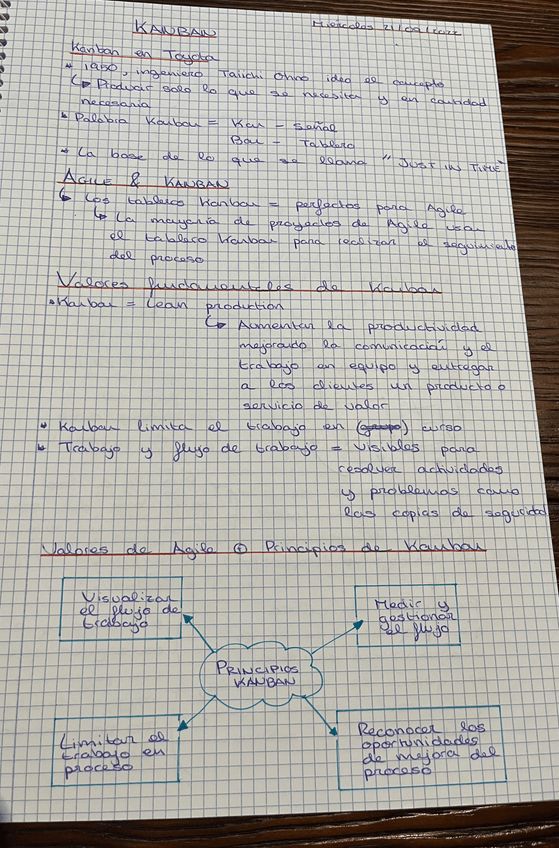 KANBAN
Miércoles 21/09/2022
Kanban en Toyota
* 1950, ingeniero Taiichi Ohno ideo el concepto
↳ Producir solo lo que se necesita y en cantidad
necesaria
* Palabra Kanban = Kan - señal
Ban - Tablero
* La base de lo que se llama "JUST IN TIME"
AGILE & KANBAN
↳ Los tableros Kanban = perfectos para Agile
↳ La mayoría de proyectos de Agile usan
el tablero Kanban para realizar el seguimiento
del proceso
Valores fundamentales de Kanban
* Kanban = Lean production
↳ Aumentar la productividad
mejorado la comunicación y el
trabajo en equipo y entregar
a los clientes un producto o
servicio de valor
* Kanban limita el trabajo en (grupo) curso
* Trabajo y flujo de trabajo = visibles para
resolver actividades
y problemas como
las copias de seguridad
Valores de Agile ⊕ Principios de Kanban
Visualizar
el flujo de
trabajo
Medir y
gestionar
el flujo
PRINCIPIOS
KANBAN
Limitar el
trabajo en
proceso
Reconocer las
oportunidades
de mejora del
proceso